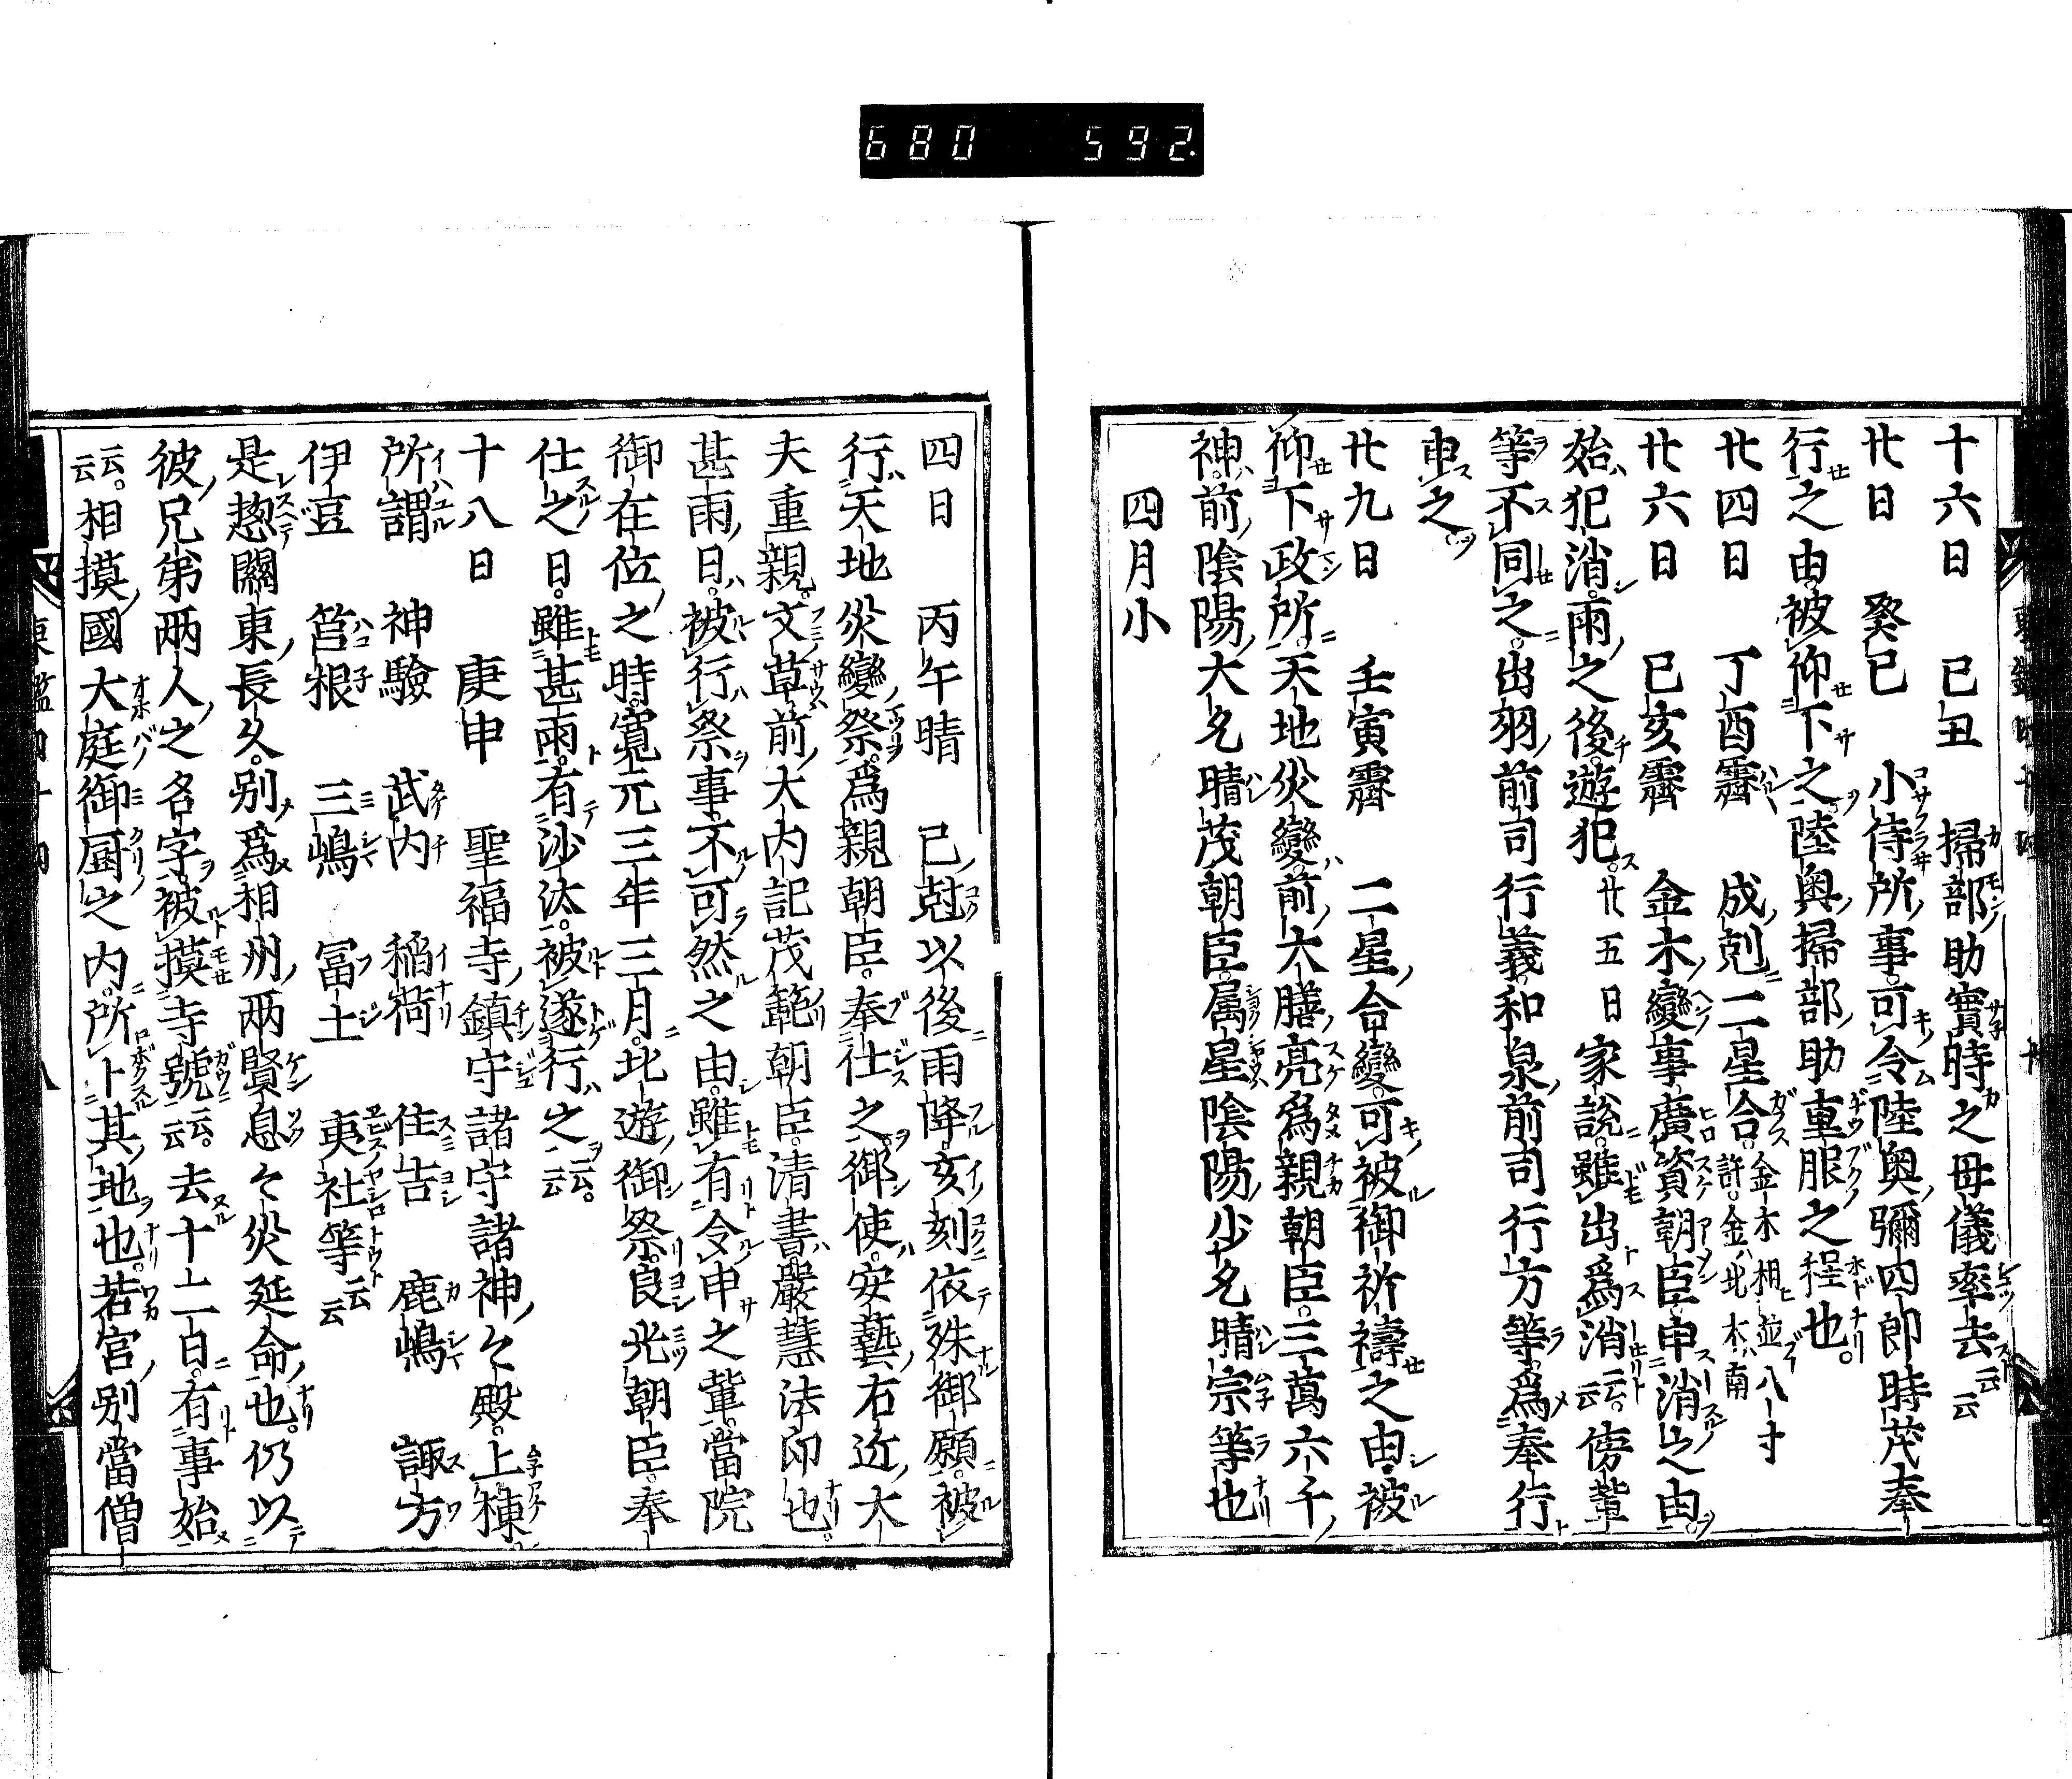 680 592.
十六日 已丑 掃部助實時之母儀率去云云
廿日 癸已 小侍所事可令陸奥彌四郎時茂奉
行之由被仰下之陸奥掃部助重服之程也
廿四日 丁酉霽 戍剋二星合金木相並八寸許金ハ北木ハ南
廿六日 已亥霽 金木變事廣資朝臣申消之由
始犯消雨之後遊犯廿五日家説雖出爲消云云傍輩
等不同之出羽前司行義和泉前司行方等爲奉行
申之
廿九日 壬寅霽 二星合變可被御祈禱之由被
仰下政所天地災變前大膳亮爲親朝臣三萬六千
神前陰陽大夕晴茂朝臣属星陰陽少夕晴宗等也
四月小
四日 丙午晴 已尅以後雨降亥刻依殊御願被
行天地災變祭爲親朝臣奉仕之御使安藝右近大
夫重親文草前大内記茂範朝臣清書嚴慧法印也
甚雨日被行祭事不可然之由雖有令申之輩當院
御在位之時寛元三年三月北遊御祭良光朝臣奉
仕之日雖甚雨有沙汰被遂行之云云
十八日 庚申 聖福寺鎮守諸守諸神々殿上棟
所謂 神驗 武内 稲荷 住吉 鹿嶋 諏方
伊豆 筥根 三嶋 冨土 夷社等云云
是惣關東長久別爲相州兩賢息々災延命也仍以
彼兄弟兩人之名字被摸寺號云云去十二日有事始
云云相摸國大庭御厨之内所卜其地也若宮別當僧